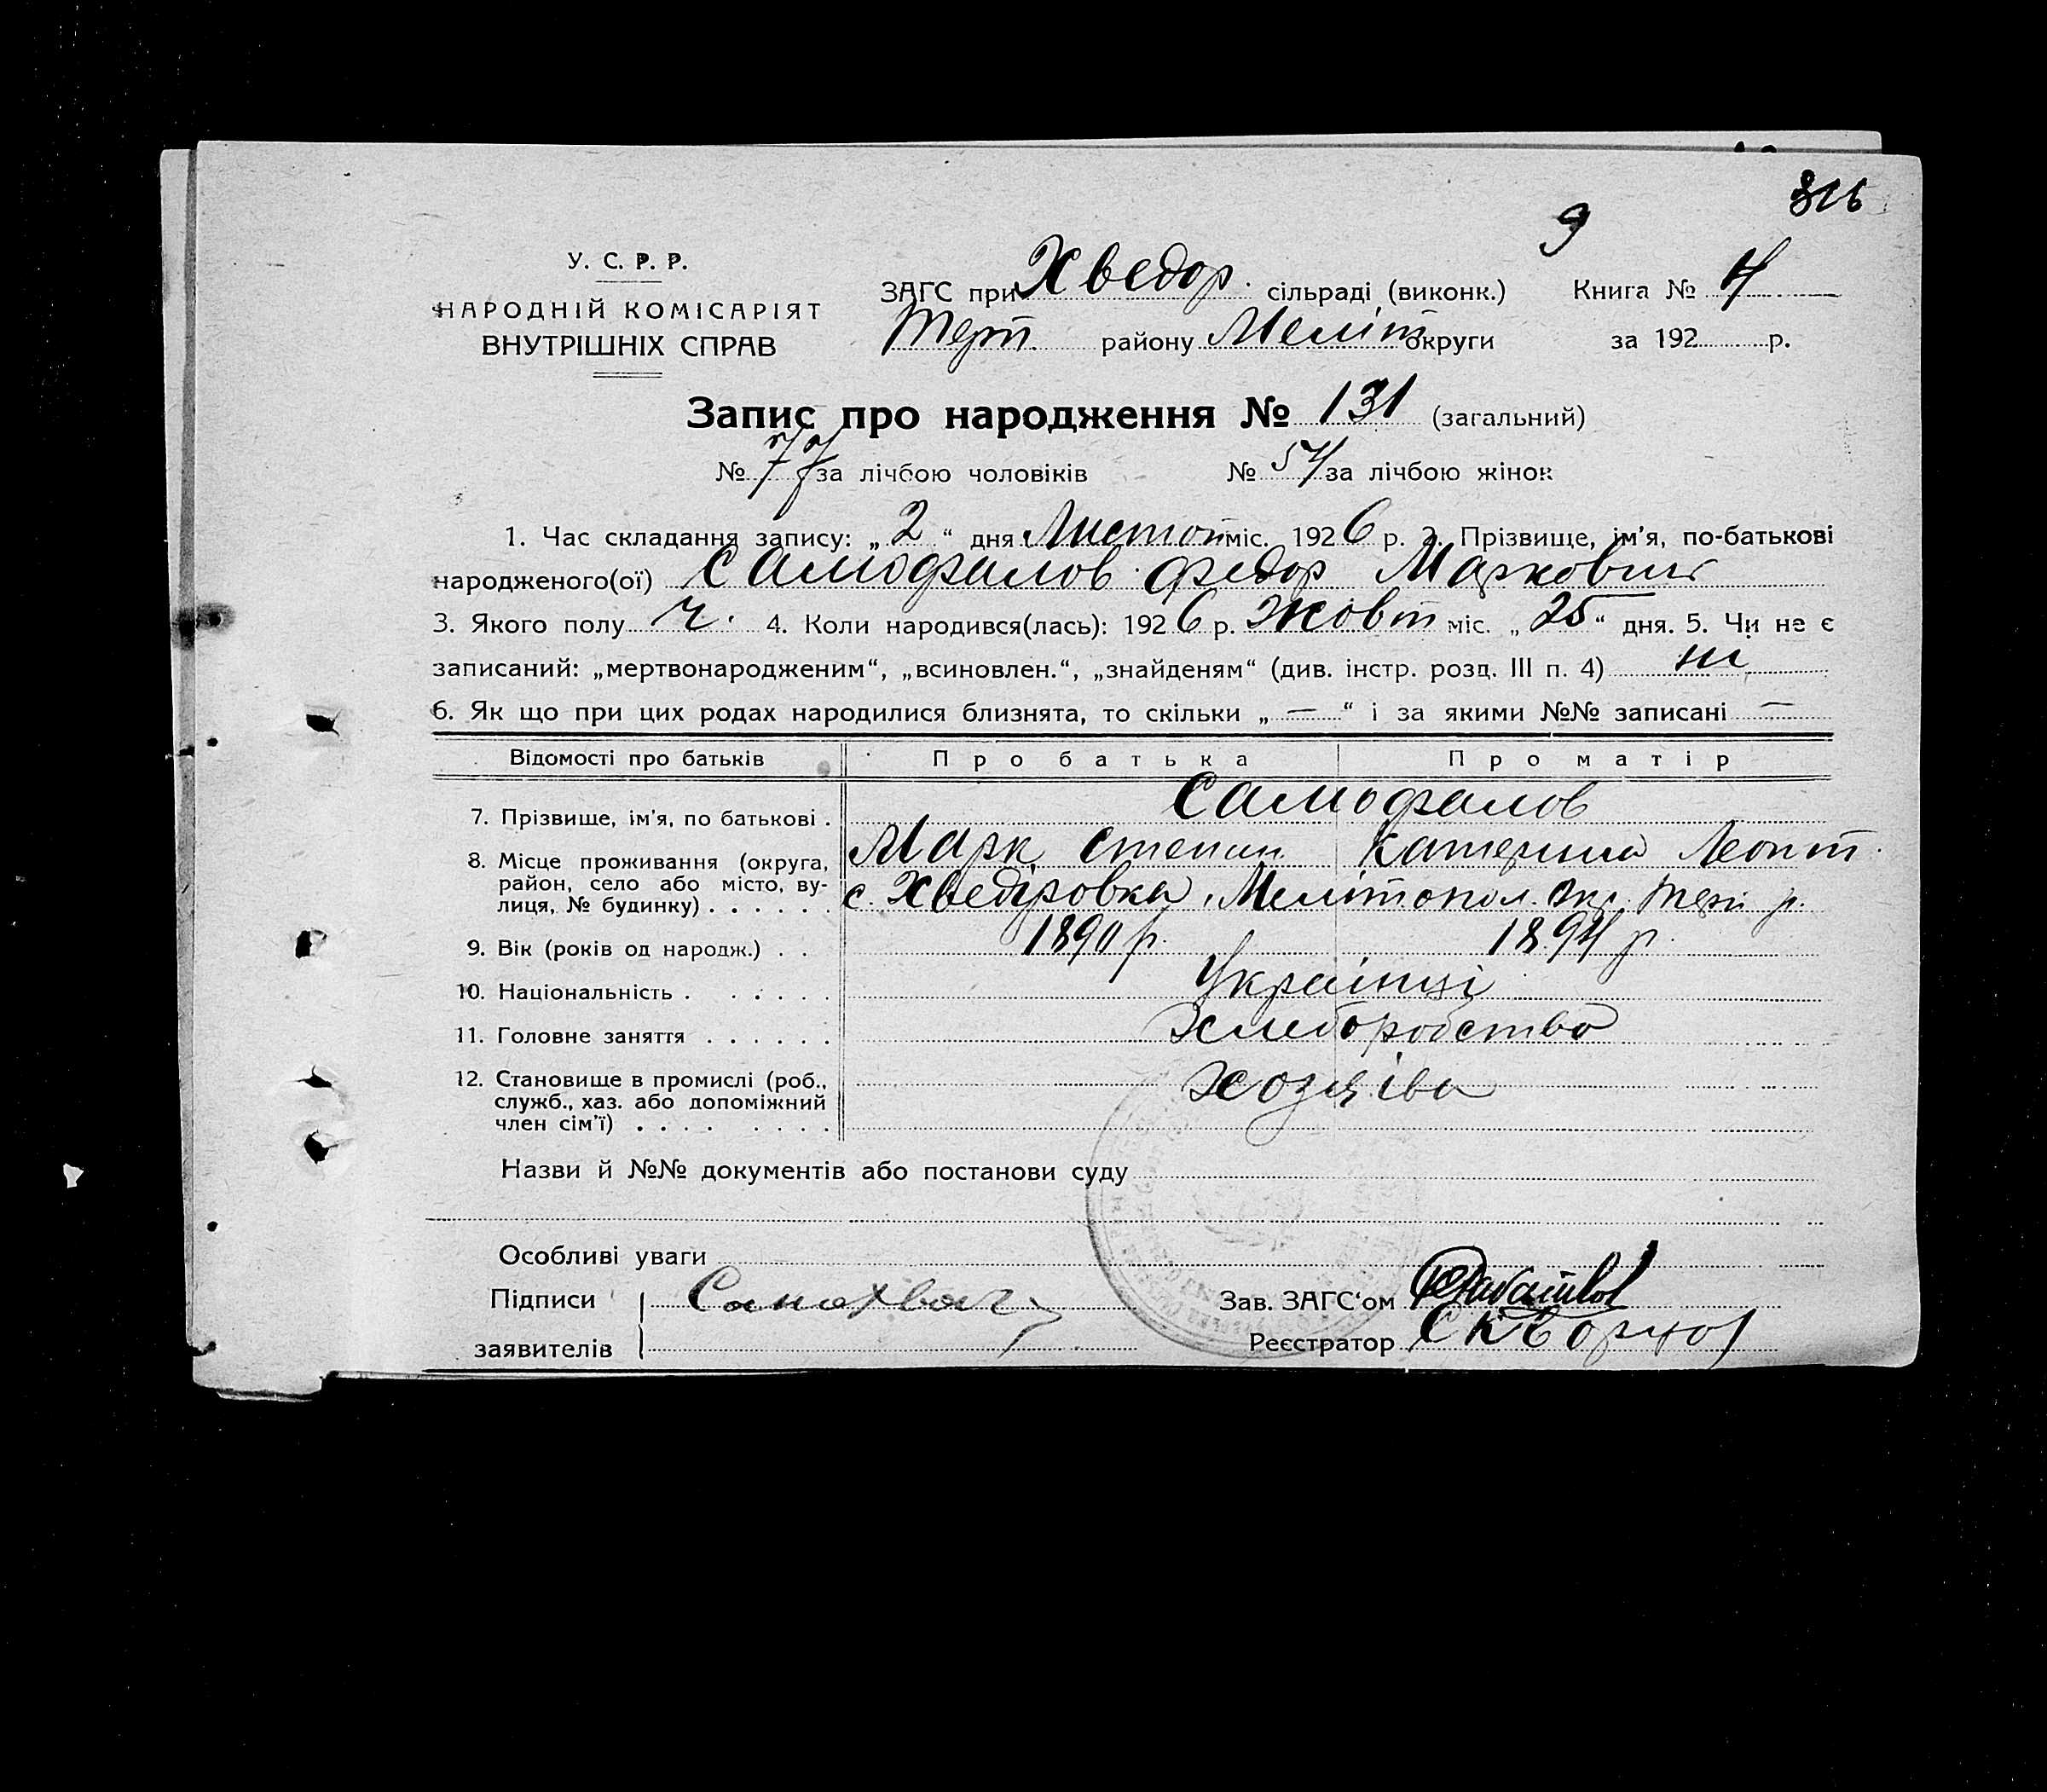 316
9
У. С. Р. Р.
НАРОДНІЙ КОМІСАРІЯТ
ВНУТРІШНІХ СПРАВ
ЗАГС при Хведор. сільраді (виконк.) Книга № 4
Терп. району Меліт округи за 192 р.
Запис про народження № 131 (загальний)
№ 77 за лічбою чоловіків № 54 за лічбою жінок
1. Час складання запису: „ 2 “ дня Листоп міс. 1926 р. 2. Прізвище, ім'я, по-батькові
народженого(ої) Самофалов Федор Маркович
3. Якого полу ч. 4. Коли народився(лась): 1926 р. Жовт міс. „ 25 “ дня. 5. Чи не є
записаний: „мертвонародженим“, „всиновлен.“, „знайденям“ (див. інстр. розд. III п. 4) ні
6. Як що при цих родах народилися близнята, то скільки „ — “ і за якими №№ записані —
Відомості про батьків Про батька Про матір
7. Прізвище, ім'я, по батькові . Самофалов
Марк Степан Катерина Леонт.
8. Місце проживання (округа, район, село або місто, ву-
лиця, № будинку) . . . . . . с. Хведіровка, Мелітопол. Окр. Терп р.
9. Вік (років од народж.) . . 1890 р. 1894 р.
10. Національність . . . . . . Українці
11. Головне заняття . . . . . . Хлеборобство
12. Становище в промислі (роб., Хозяіва
служб., хаз. або допоміжний
член сім'ї) . . . . . . . .
Назви й №№ документів або постанови суду
Особливі уваги
Підписи
заявителів
Зав. ЗАГС'ом
Реєстратор Скворцов